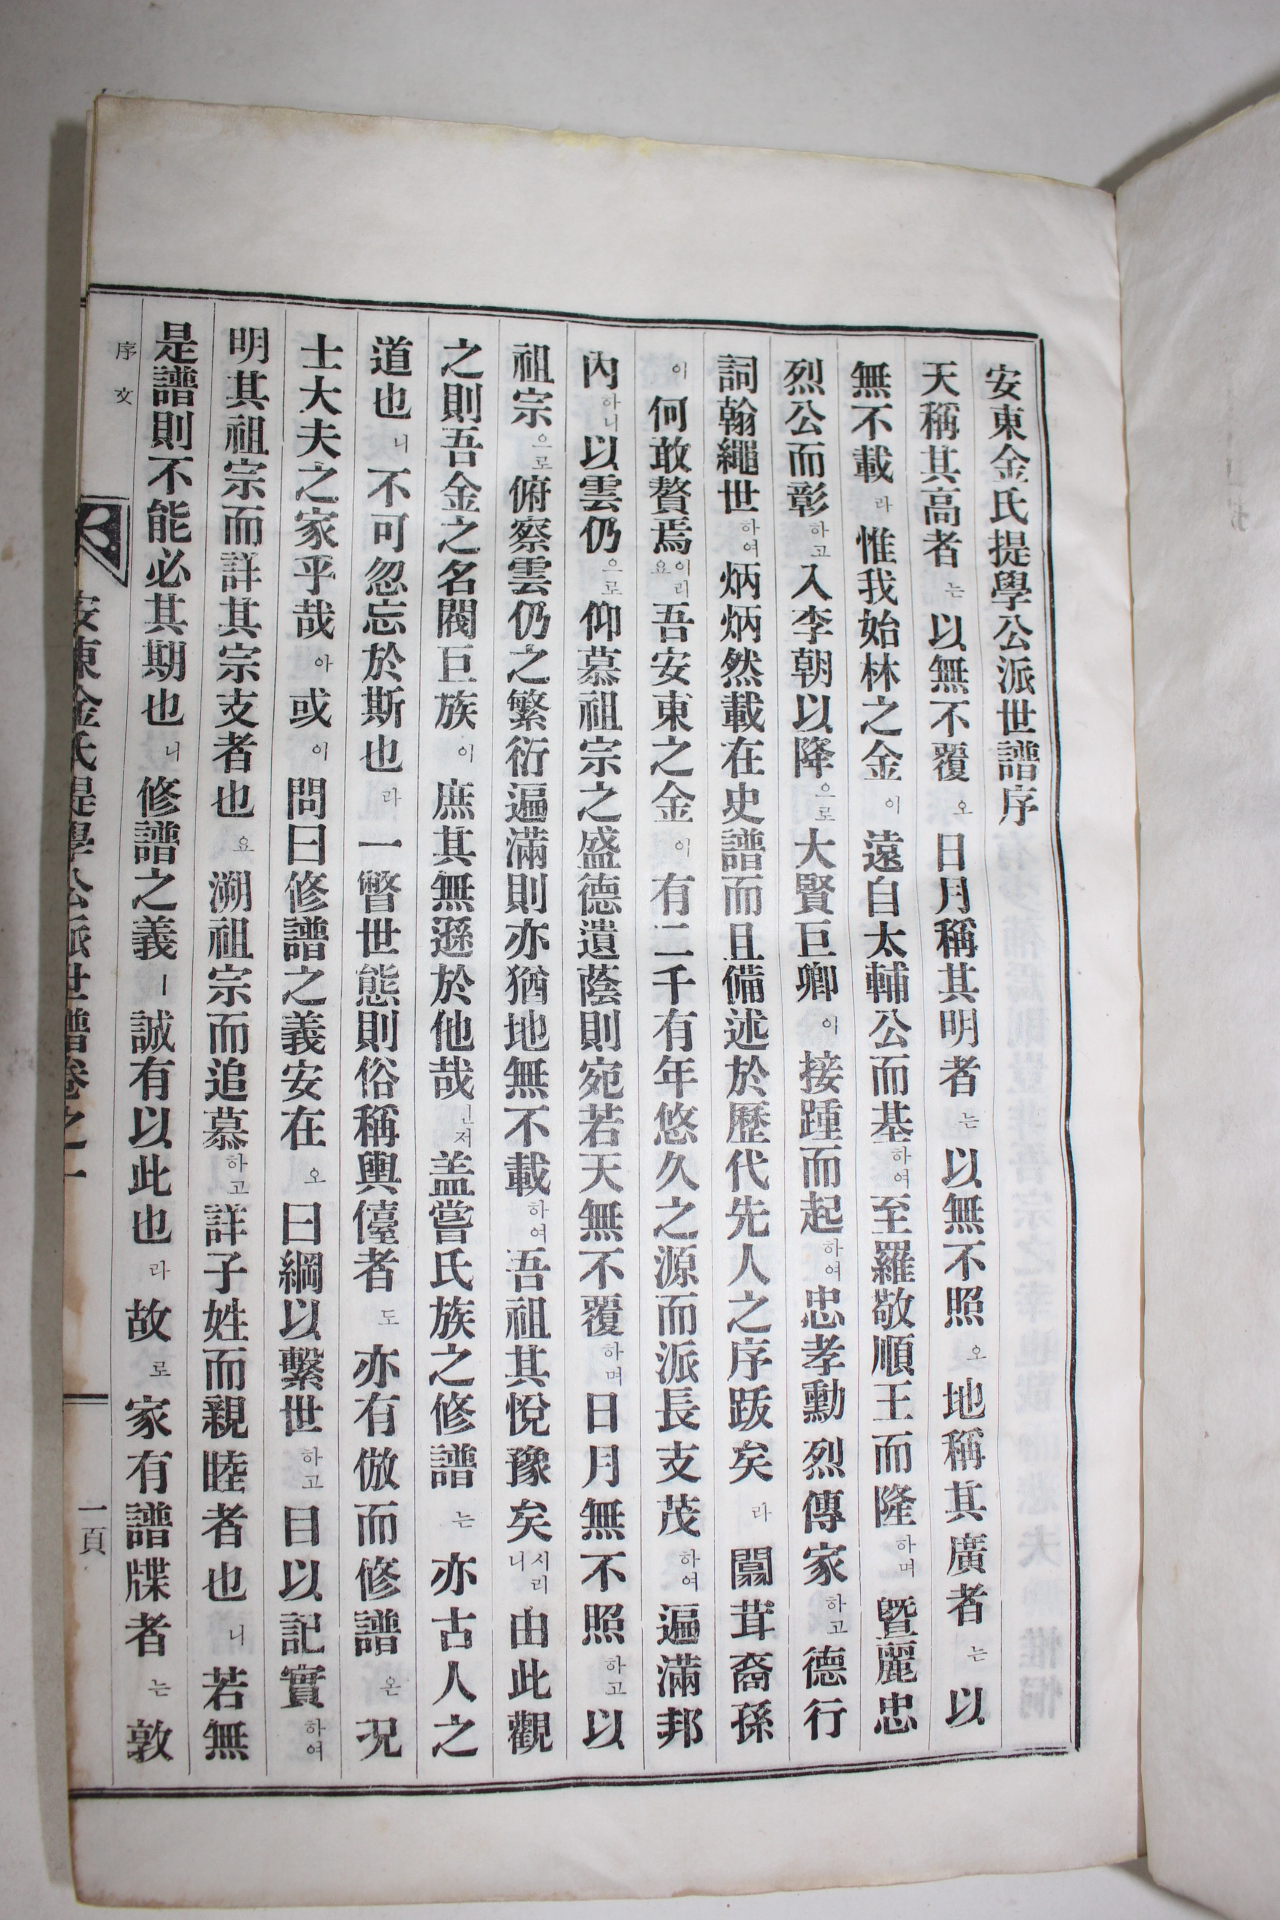 安東金氏提學公派世譜序
天稱其高者는以無不覆오日月稱其明者는以無不照오地稱其廣者는以
無不載라惟我始林之金이遠自太輔公而基하여至羅敬順王而隆하며曁麗忠
烈公而彰하고入李朝以降으로大賢巨卿이接踵而起하여忠孝勳烈傳家하고德行
詞翰繩世하여炳炳然載在史譜而且備述於歷代先人之序跋矣라闒茸裔孫
이何敢贅焉이리요吾安東之金이有二千有年悠久之源而派長支茂하여遍滿邦
內하니以雲仍으로仰慕祖宗之盛德遺蔭則宛若天無不覆하며日月無不照하고以
祖宗으로俯察雲仍之繁衍遍滿則亦猶地無不載하여吾祖其悅豫矣시리니由此觀
之則吾金之名閥巨族이庶其無遜於他哉인저盖嘗氏族之修譜는亦古人之
道也니不可忽忘於斯也라一瞥世態則俗稱輿儓者도亦有倣而修譜온況
士大夫之家乎哉아或이問曰修譜之義安在오曰綱以繫世하고目以記實하여
明其祖宗而詳其宗支者也요溯祖宗而追慕하고詳子姓而親睦者也니若無
是譜則不能必其期也니修譜之義ㅣ誠有以此也라故로家有譜牒者는敦
序文
安東金氏提學公派世譜卷之一
一頁